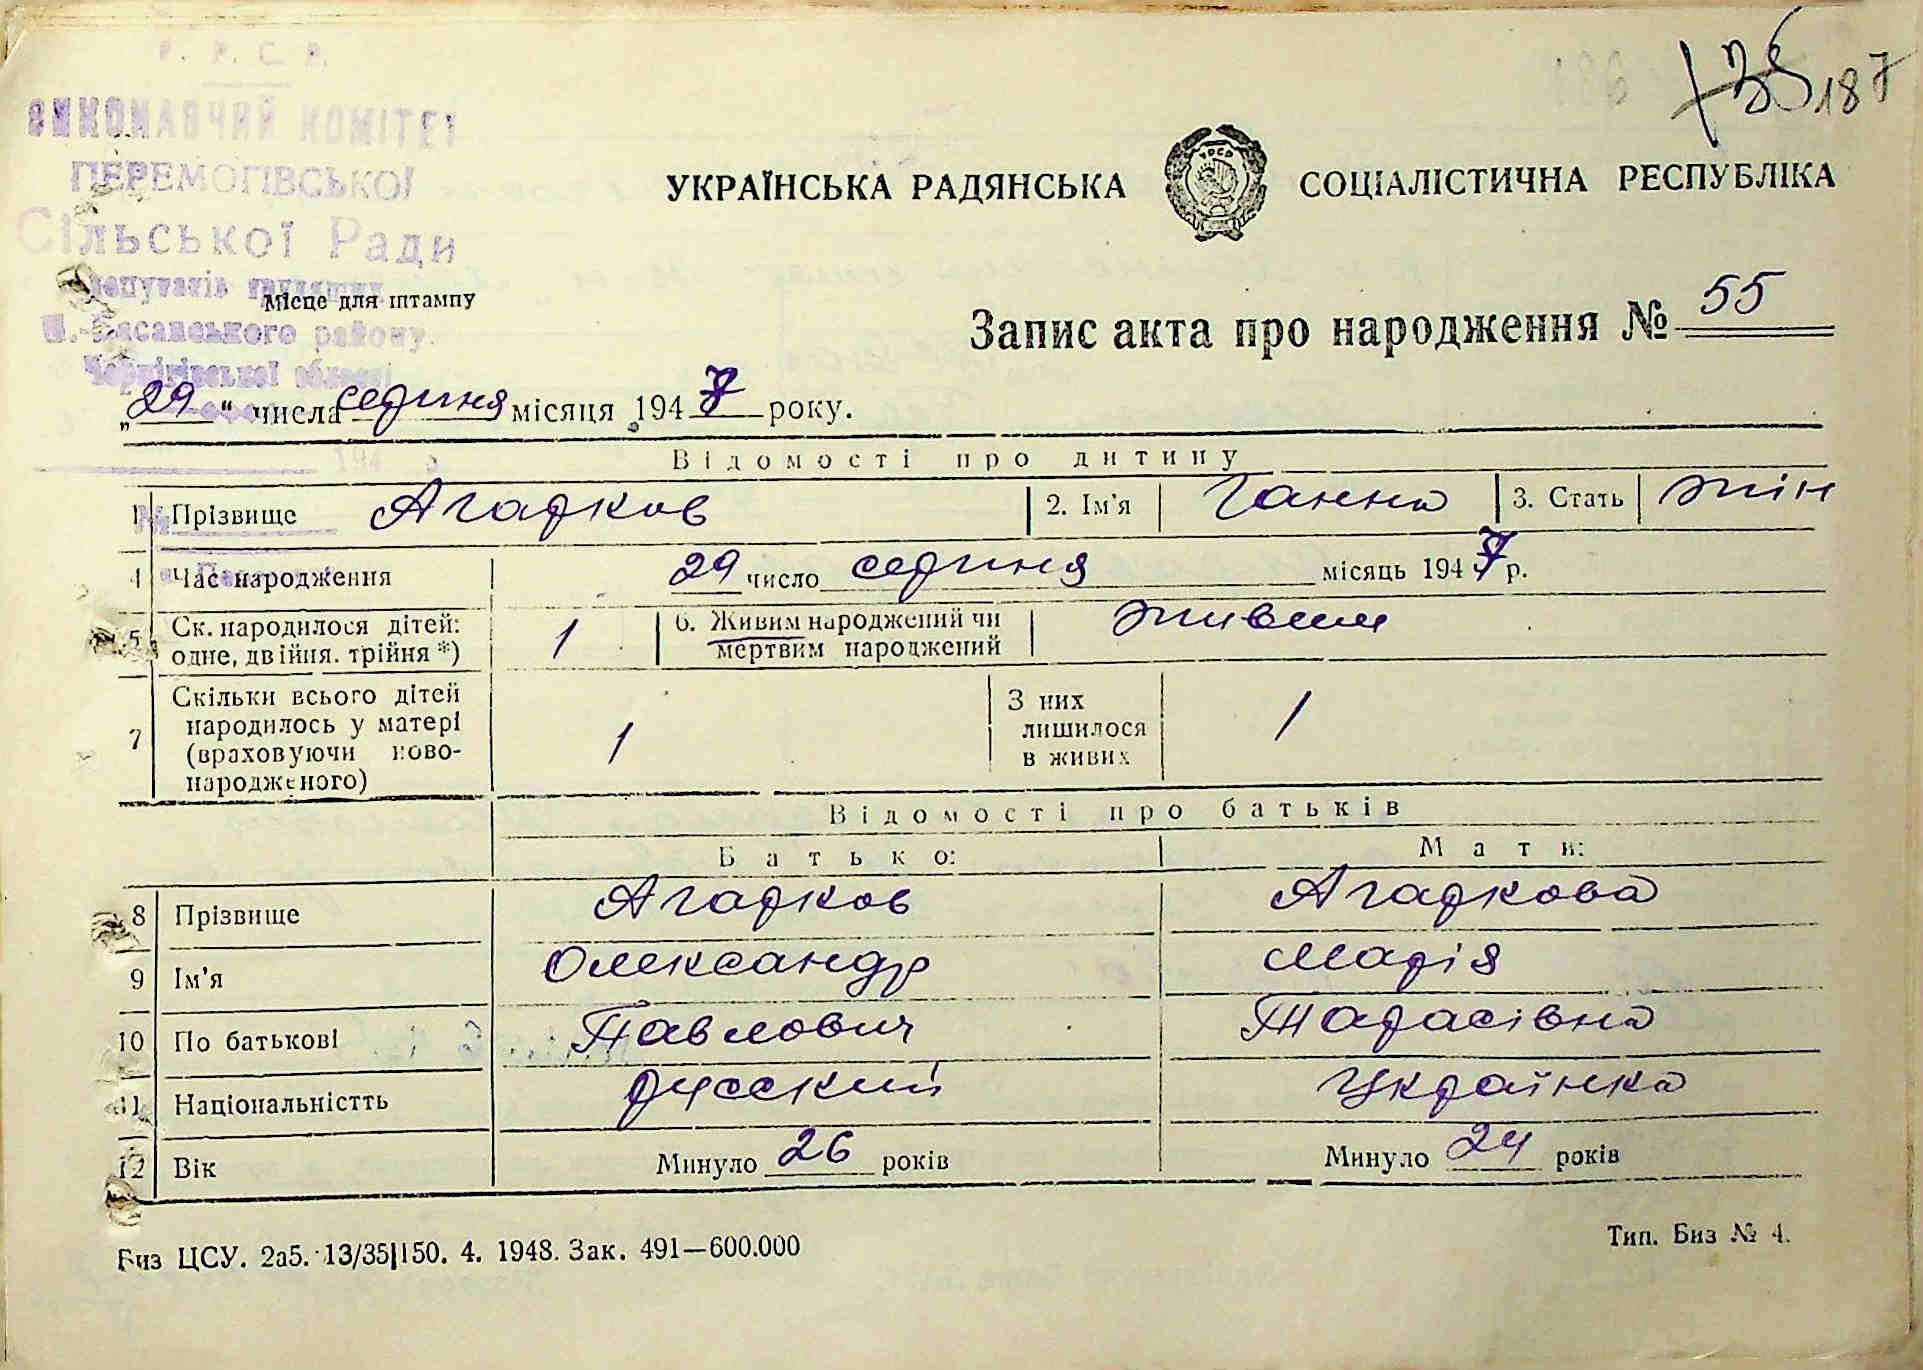 Р. Р. С. Р.
ВИКОНАВЧИЙ КОМІТЕТ
ПЕРЕМОГІВСЬКОЇ
Сільської Ради
депутатів трудящих
району
Чернігівської області
Місце для штампу
135 187
УКРАЇНСЬКА РАДЯНСЬКА СОЦІАЛІСТИЧНА РЕСПУБЛІКА
Запис акта про народження № 55
„29“ числа серпня місяця 1947 року.
194
Відомості про дитину
1 Прізвище Агарков 2. Ім'я Ганна 3. Стать жін
4 Час народження 29 число серпня місяць 1947 р.
5 Ск. народилося дітей: одне, двійня. трійня *) 1 6. Живим народжений чи мертвим народжений живим
7 Скільки всього дітей народилось у матері (враховуючи ново-народженого) 1 З них лишилося в живих 1
Відомості про батьків
Батько: Мати:
8 Прізвище Агарков Агаркова
9 Ім'я Олександр Марія
10 По батькові Павлович Тарасівна
11 Національністть русский Українка
12 Вік Минуло 26 років Минуло 24 років
Биз ЦСУ. 2а5. 13/35|150. 4. 1948. Зак. 491—600.000 Тип. Биз № 4.